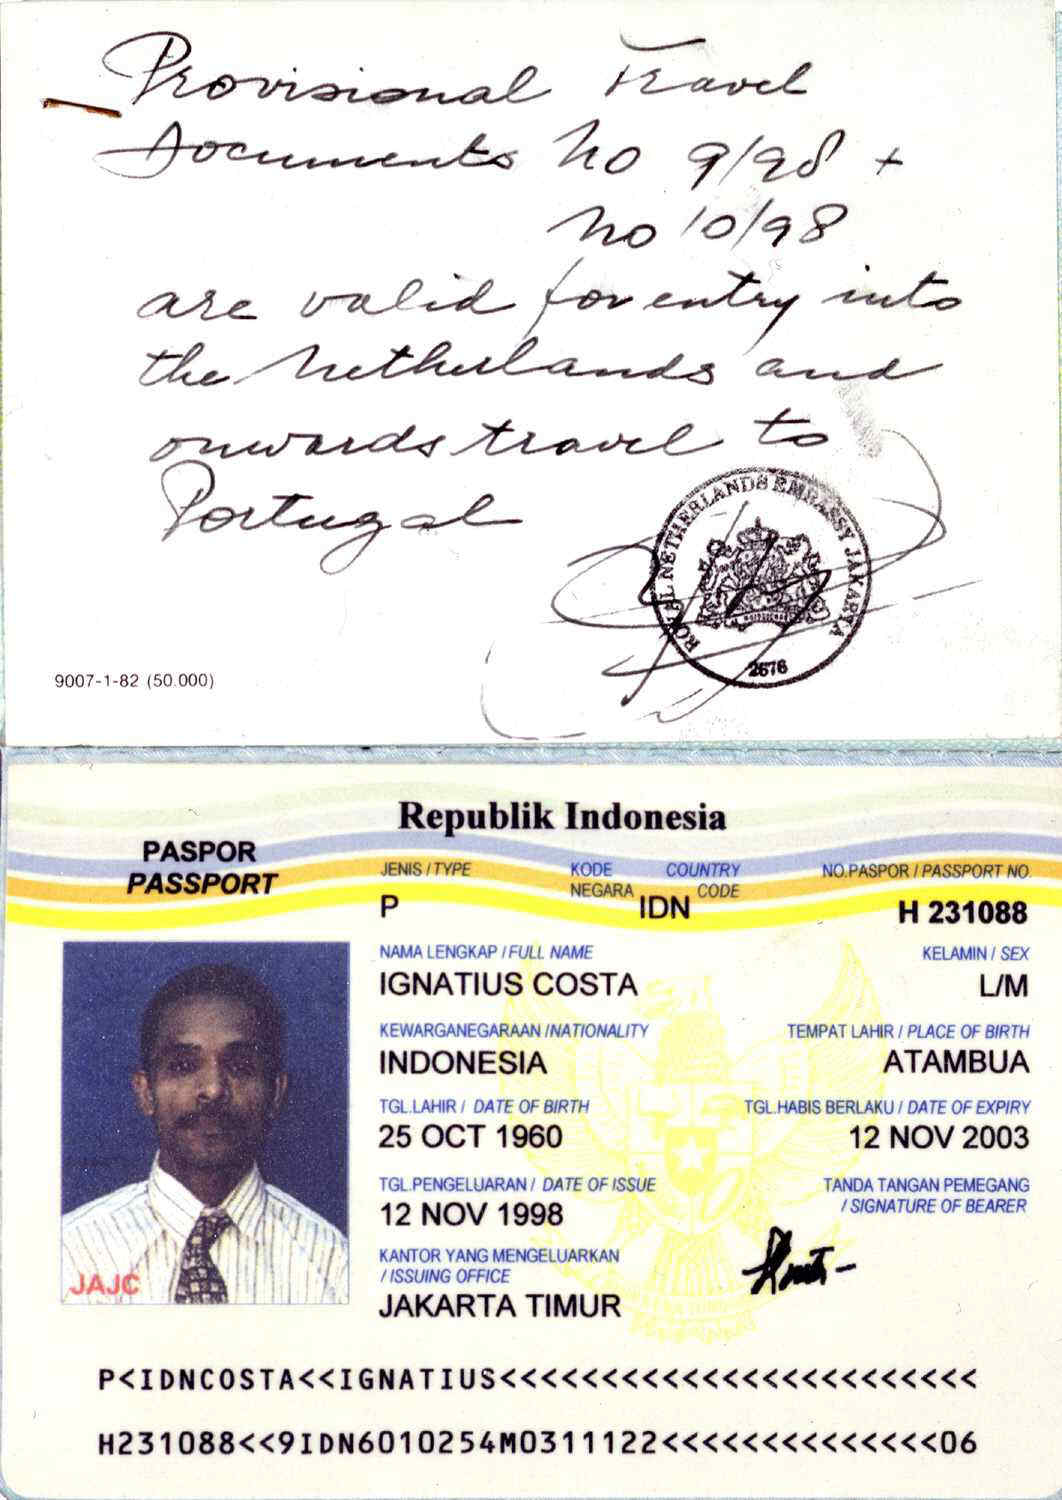 Provisional Travel
Documents No 9/98 +
No 10/98
are valid for entry into
the Netherlands and
onwards travel to
Portugal
ROYAL NETHERLANDS EMBASSY JAKARTA
2676
9007-1-82 (50.000)
Republik Indonesia
PASPOR
PASSPORT
JENIS / TYPE
P
KODE NEGARA
COUNTRY CODE
IDN
NO.PASPOR / PASSPORT NO.
H 231088
NAMA LENGKAP / FULL NAME
IGNATIUS COSTA
KELAMIN / SEX
L/M
KEWARGANEGARAAN /NATIONALITY
INDONESIA
TEMPAT LAHIR / PLACE OF BIRTH
ATAMBUA
TGL.LAHIR / DATE OF BIRTH
25 OCT 1960
TGL.HABIS BERLAKU / DATE OF EXPIRY
12 NOV 2003
TGL.PENGELUARAN / DATE OF ISSUE
12 NOV 1998
TANDA TANGAN PEMEGANG
/ SIGNATURE OF BEARER
KANTOR YANG MENGELUARKAN
/ ISSUING OFFICE
JAKARTA TIMUR
JAJC
P<IDNCOSTA<<IGNATIUS<<<<<<<<<<<<<<<<<<<<<<<<
H231088<<9IDN6010254M0311122<<<<<<<<<<<<<<06